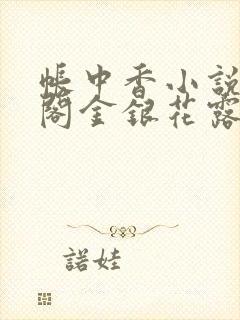 帳中香小說
閣金銀花露
諾娃